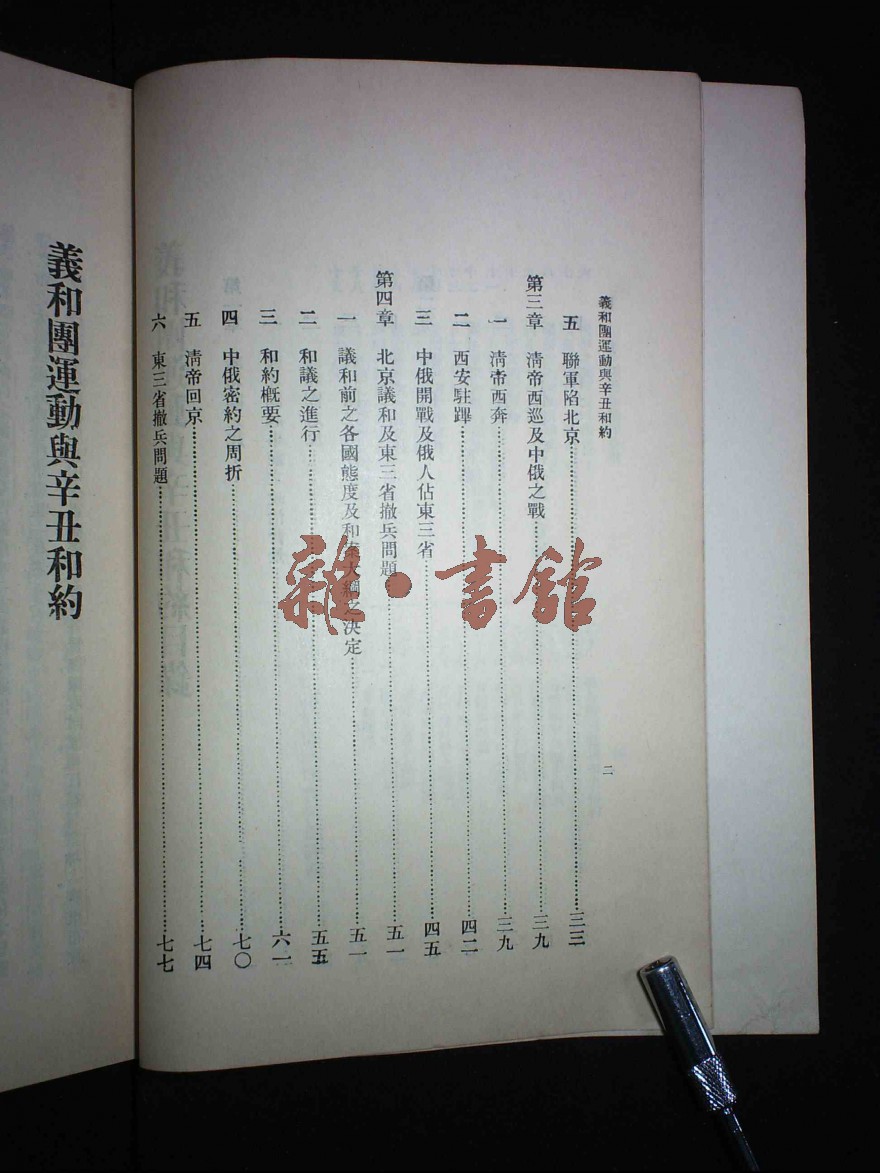 義和團運動與辛丑和約
二
五 聯軍陷北京…三三
第三章 淸帝西巡及中俄之戰…三九
一 淸帝西奔…三九
二 西安駐蹕…四二
三 中俄開戰及俄人佔東三省…四五
第四章 北京議和及東三省撤兵問題…五一
一 議和前之各國態度及和案大綱之決定…五一
二 和議之進行…五五
三 和約概要…六一
四 中俄密約之周折…七〇
五 淸帝回京…七四
六 東三省撤兵問題…七七
義和團運動與辛丑和約
雜·書館